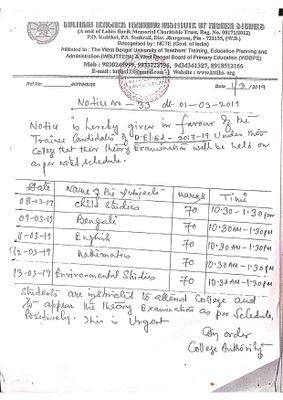 (A unit of Lalita Bank Memorial Charitable Trust, Reg. No. 00171/2012)
Recognised by : NCTE (Govt. of India)
Affiliated to : The West Bengal University of Teachers' Training, Education Planning and
Administration (WBUTTEPA) & West Bengal Board of Primary Education (WBBPE)
Date 1/3/2019
Notice no - 33 dt 01-03-2019
Notice is hereby given in favour of the
Trainee Candidates of D.El.Ed - 2017-19 Under this
College that their Theory Examination will be held on
as per noted schedule:
Date Name of the Subjects marks Time
08-03-19 Child Studies 70 10:30 - 1:30pm
09-03-19 Bengali 70 10:30AM - 1:30pm
11-03-19 English 70 10:30AM - 1:30pm
12-03-19 Mathematics 70 10:30AM - 1:30pm
13-03-19 Environmental Studies 70 10:30AM - 1:30pm
Students are instructed to attend College and
to appear the theory Examination as per Schedule,
Positively. This is Urgent
By order
College Authority